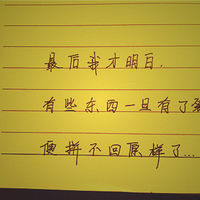 最后我才明白.
有些东西一旦有了
便拼不回原样了...